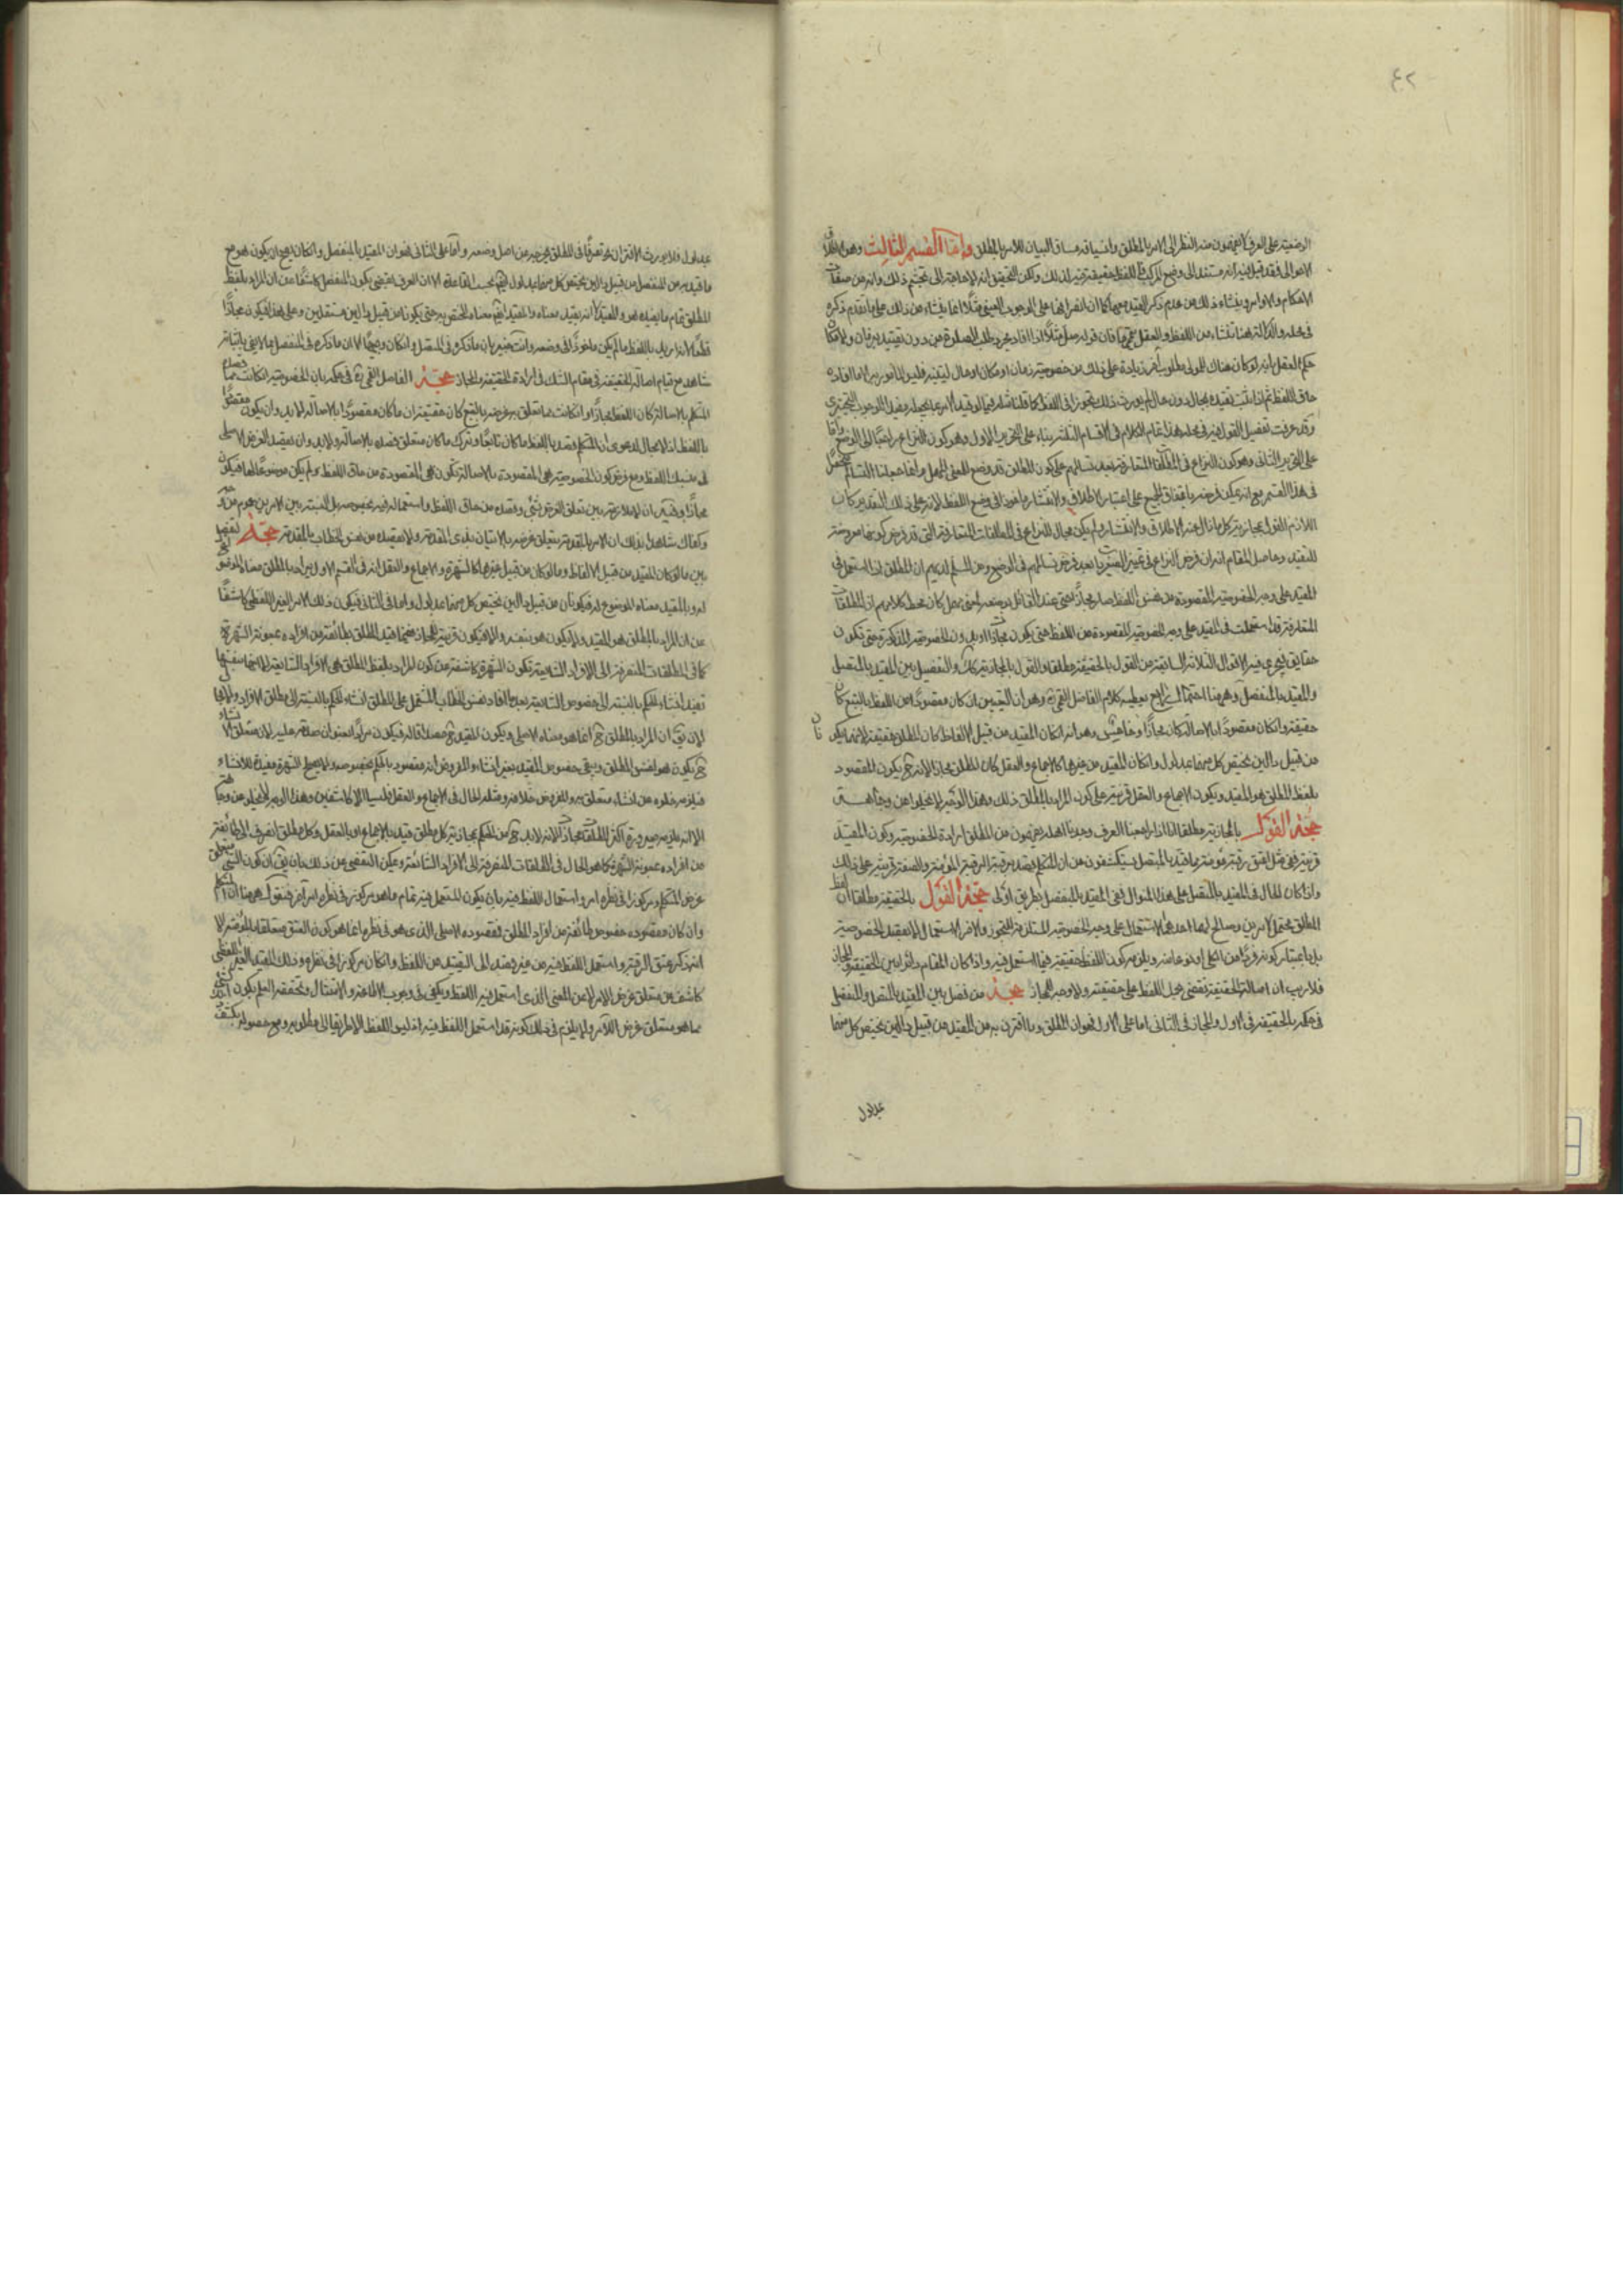 ٤٢
الوضعية على العرف لا يفهمون منه النظر الى الامر بالمطلق وانسياقه مساق البيان للامر بالمطلق واما القسم الثالث وهو الاطلاق
الاحوالى فقد قيل فيه انه مستند الى وضع المركب واللفظ حقيقة فيه لذلك ولكن التحقيق انه لا حاجة الى تجشم ذلك وانه من صفات
الاحكام والاوامر وينشاء ذلك من عدم ذكر القيد معها كما ان انصرافها على الوجوب العينى مثلا انما ينشاء من ذلك على ما تقدم ذكره
فى محله والدلالة هنا تنشاء من اللفظ والعقل معا فان قوله صل مثلا اذا افاد مجرد طلب الصلوة من دون تقييد بزمان ولا مكان
حكم العقل بانه لو كان هناك للمولى مطلوب اخر زيادة على ذلك من خصوصية زمان او مكان او حال لبينه فليس المأمور به الا ما افاده
حاق اللفظ ثم اذا ثبت تقييده بحال دون حال لم يورث ذلك تجوزا فى اللفظ كما قلنا مثله فيما لو قيد الامر بما يجعله مفيدا للوجوب التخييرى
وقد عرفت تفصيل القول فيه فى محله هذا تمام الكلام فى الاقسام الثلثة بناء على التحرير الاول وهو كون النزاع راجعا الى الوضع واما
على التحرير الثانى وهو كون النزاع فى المطلقات المتعارفة بعد تسالمهم على كون المطلق قد وضع للمعنى المهمل
فى هذا القسم مع انه يمكن فرضه باتفاق الجميع على اعتبار الاطلاق والانتشار ماخوذا فى وضع اللفظ لانه على ذلك التقدير كان
اللازم القول بمجازية كل ما زال عنه الاطلاق والانتشار ولم يكن مجال للنزاع فى المطلقات المتعارفة التى قد فرض كونها معروضة
للتقييد وحاصل المقام انه ان فرض النزاع فى تحرير بعد فرض تسالمهم فى الوضع ومن المسلم لديهم ان المطلق اذا استعمل فى
المقيد على وجه الخصوصية المقصودة من نفس اللفظ صار مجازا حتى عند القائل بوضعه لمعنى مهمل كان محط كلامهم ان المطلقات
المتعارفة قد استعملت فى المقيد على وجه الخصوصية المقصودة من اللفظ حتى يكون مجازات او بدون الخصوصية المذكورة حتى تكون
حقايق فيجرى فيه الاقوال الثلاثة السابقة من القول بالحقيقة مطلقا والقول بالمجازية كذلك والتفصيل بين المقيد بالمتصل
والمقيد بالمنفصل وهيهنا احتمال رابع يعطيه كلام الفاضل القمى ره وهو ان التقييد ان كان مقصودا من اللفظ بالتبع كان
حقيقة وان كان مقصودا بالاصالة كان مجازا وخامس وهو انه ان كان المقيد من قبيل الالفاظ كان المطلق حقيقة لانهما يكونان
من قبيل دالين يختص كل منهما بمدلول وان كان المقيد من غيرها كالاجماع والعقل كان المطلق مجازا لانه ح يكون المقصود
بلفظ المطلق هو المقيد ويكون الاجماع والعقل قرينة على كون المراد بالمطلق ذلك وهذا الوجه لا يخلوا من وجاهة
حجة القول بالمجازية مطلقا انا اذا راجعنا العرف وجدنا اهله يفهمون من المطلق ارادة الخصوصية وكون المقيد
قرينة ففى مثل اعتق رقبة مؤمنة مما قيد بالمتصل يستكشفون من ان المتكلم قصد برقبة الرقبة المؤمنة والصفة قرينة على ذلك
واذا كان الحال فى المقيد بالمتصل على هذا المنوال ففى المقيد بالمنفصل بطريق اولى حجة القول بالحقيقة مطلقا ان لفظ
المطلق محتمل لامرين وصالح لهما احدهما الاستعمال على وجه الخصوصية المستلزمة للتجوز والاخر الاستعمال لا بقصد الخصوصية
بل باعتبار كونه فردا من الكلى او نوعا منه ويلزمه كون اللفظ حقيقة فيما استعمل فيه واذا كان المقام دائرا بين الحقيقة والمجاز
فلا ريب ان اصالة الحقيقة تقتضى حمل اللفظ على حقيقته ولا وجه للمجاز حجة من فصل بين المقيد بالمتصل والمنفصل
فى حكمه بالحقيقة فى الاول والمجاز فى الثانى اما على الاول فهو ان المطلق وما اقترن به من المقيد من قبيل دالين يختص كل منهما
بمدلول
بمدلول فلا يورث الاقتران به تصرفا فى المطلق يخرجه عن اصل وضعه واما على الثانى فهو ان المقيد بالمنفصل وان كان يصح ان يكون هو مع
ما قيد به من المنفصل من قبيل دالين يختص كل منهما بمدلول بحسب القاعدة الا ان العرف يقتضى بكون المنفصل كاشفا عن ان المراد بلفظ
المطلق تمام ما يفيده هو والمقيد لا انه يفيد معناه والمقيد ايضا معناه المختص به حتى يكونا من قبيل دالين مستقلين وعلى هذا فيكون مجازا
قطعا لانه اريد باللفظ ما لم يكن ماخوذا فى وضعه وانت خبير بان ما ذكره فى المتصل وان كان وجيها الا ان ما ذكره فى المنفصل مما لا يفى باثباته
شاهد مع قيام اصالة الحقيقة فى مقام الشك فى ارادة الحقيقة والمجاز حجة الفاضل القمى ره فى حكمه بان الخصوصية ان كانت مما قصده
المتكلم بالاصالة كان اللفظ مجازا وان كانت مما تعلق به غرضه بالتبع كان حقيقة ان ما كان مقصودا بالاصالة لابد وان يكون مقصودا
باللفظ اذ لا مجال لدعوى ان المتكلم قصد باللفظ ما كان تابعا وترك ما كان متعلق قصده بالاصالة ولابد وان يقصد الغرض الاصلى
له بذلك اللفظ ومع فرض كون الخصوصية هى المقصودة بالاصالة تكون هى المقصودة من حاق اللفظ ولم يكن موضوعا لها فيكون
مجازا وفيه ان لا ملازمة بين تعلق الغرض بشئ وقصده من حاق اللفظ واستعماله فيه بخصوصه بل النسبة بين الامرين عموم من وجه
وكفاك شاهدا بذلك ان الامر بالمقدمة يتعلق غرضه بالاتيان بذى المقدمة ولا يقصده من نفس الخطاب بالمقدمة حجة التفصيل
بين ما لو كان المقيد من قبيل الالفاظ وما لو كان من قبيل غيرها كالشهرة والاجماع والعقل انه فى القسم الاول يراد بالمطلق معناه الموضوع
له وبالمقيد معناه الموضوع له فيكونان من قبيل دالين يختص كل منهما بمدلول واما فى الثانى فيكون ذلك الامر الغير اللفظى كاشفا
عن ان المراد بالمطلق هو المقيد ولا يكون هو بنفسه والا فيكون قرينة المجاز فيما قيد المطلق بطائفة من افراده بمعونة الشهرة
كما فى المطلقات المنصرفة الى الافراد الشايعة تكون الشهرة كاشفة عن كون المراد بلفظ المطلق هى الافراد الشايعة
تفيد انشاء للحكم بالنسبة الى خصوص الشايعة بعد ما افاد نفس الخطاب المشتمل على المطلق انشاء الحكم بالنسبة الى مطلق الافراد
لان يق ان المراد بالمطلق ح انما هو معناه الاصلى ويكون المقيد ح مصداقا له فيكون مرادا بعنوان صدقه عليه لان متعلق الانشاء
ح يكون هو نفس المطلق ويبقى خصوص المقيد بغير انشاء والمفروض انه مقصود بالحكم بخصوصه ولا يصلح الشهرة مفيدة للانشاء
فيلزم خلوه من انشاء متعلق به والمفروض خلافه ومثله الحال فى الاجماع والعقل فليسا الا كاشفين وهذا الوجه لا يخلو من وجاهة
الا انه يلزم صيرورة اكثر المطلقات مجازات لانه لابد ح من الحكم بمجازية كل مطلق قيد بالاجماع او بالعقل وكل مطلق انصرف الى طائفة
من افراده بمعونة الشهرة كما هو الحال فى المطلقات المنصرفة الى الافراد الشائعة ويمكن التفصى عن ذلك بان يق ان كون الشئ متعلق
غرض المتكلم ومركوزا فى نظره امر واستعمال اللفظ فيه بان يكون المستعمل فيه تمام ما هو مركوز فى نظره امر اخر فنقول هيهنا ان المتكلم
وان كان مقصوده خصوص طائفة من افراد المطلق فمقصوده الاصلى الذى هو فى نظره انما هو كون العتق متعلقا بالمؤمنة الا
انه ذكر عتق الرقبة واستعمل اللفظ فيه من غير قصد الى التقييد من اللفظ وان كان مركوزا فى نظره وذلك المقيد الغير اللفظى
كاشف عن متعلق غرض الامر لا عن المعنى الذى استعمل فيه اللفظ ويكفى فى وجوب الاطاعة والامتثال وتحققه العلم بكون
مما هو متعلق غرض الامر ولا يلزم فى ذلك كونه قد استعمل اللفظ فيه اذ ليس اللفظ الا طريقا الى مطلوبه ومع حصوله